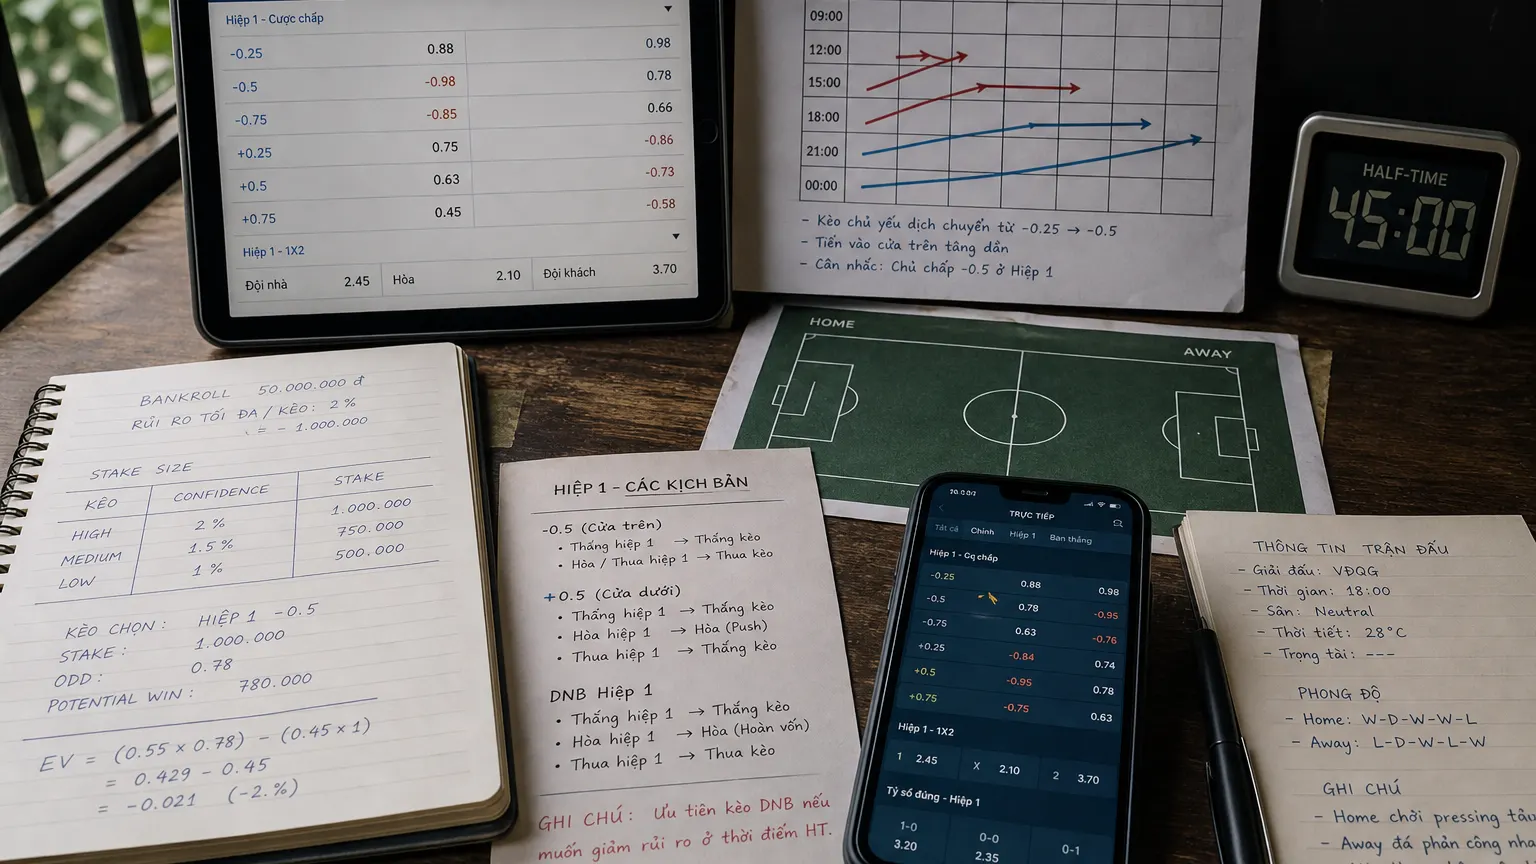 Hiệp 1 - Cược chấp
-0.25 0.88 0.98
-0.5 -0.98 0.78
-0.75 -0.85 0.66
+0.25 0.75 -0.86
+0.5 0.63 -0.73
+0.75 0.45 -0.58
Hiệp 1 - 1X2
Đội nhà 2.45 Hòa 2.10 Đội khách 3.70
09:00
12:00
15:00
18:00
21:00
00:00
- Kèo chủ yếu dịch chuyển từ -0.25 → -0.5
- Tiến vào cửa trên tăng dần
- Cân nhắc: Chủ chấp -0.5 ở Hiệp 1
HALF-TIME
45:00
HOME
AWAY
BANKROLL 50.000.000 đ
RỦI RO TỐI ĐA / KÈO: 2%
= - 1.000.000
STAKE SIZE
KÈO CONFIDENCE STAKE
HIGH 2% 1.000.000
MEDIUM 1.5% 750.000
LOW 1% 500.000
KÈO CHỌN: HIỆP 1 -0.5
STAKE: 1.000.000
ODD: 0.78
POTENTIAL WIN: 780.000
EV = (0.55 x 0.78) - (0.45 x 1)
= 0.429 - 0.45
= -0.021 (-2.%)
HIỆP 1 - CÁC KỊCH BẢN
-0.5 (Cửa trên)
• Thắng hiệp 1 → Thắng kèo
• Hòa / Thua hiệp 1 → Thua kèo
+0.5 (Cửa dưới)
• Thắng hiệp 1 → Thắng kèo
• Hòa hiệp 1 → Hòa (Push)
• Thua hiệp 1 → Thắng kèo
DNB Hiệp 1
• Thắng hiệp 1 → Thắng kèo
• Hòa hiệp 1 → Hòa (Hoàn vốn)
• Thua hiệp 1 → Thua kèo
GHI CHÚ: Ưu tiên kèo DNB nếu
muốn giảm rủi ro ở thời điểm HT.
TRỰC TIẾP
Tất cả Chính Hiệp 1 Bàn thắng
Hiệp 1 - Cq chấp
-0.25 0.88 0.98
-0.5 0.78 -0.95
-0.75 0.63 -0.76
+0.25 -0.84 0.74
+0.5 -0.95 0.78
+0.75 -0.75 0.63
Hiệp 1 - 1X2
1 2.45 X 2.10 2 3.70
Tỷ số đúng - Hiệp 1
1-0 0-0 0-1
3.20 2.35
THÔNG TIN TRẬN ĐẤU
- Giải đấu: VĐQG
- Thời gian: 18:00
- Sân: Neutral
- Thời tiết: 28°C
- Trọng tài: ---
PHONG ĐỘ
- Home: W-D-W-W-L
- Away: L-D-W-L-W
GHI CHÚ
- Home chơi pressing
- Away đá phản công